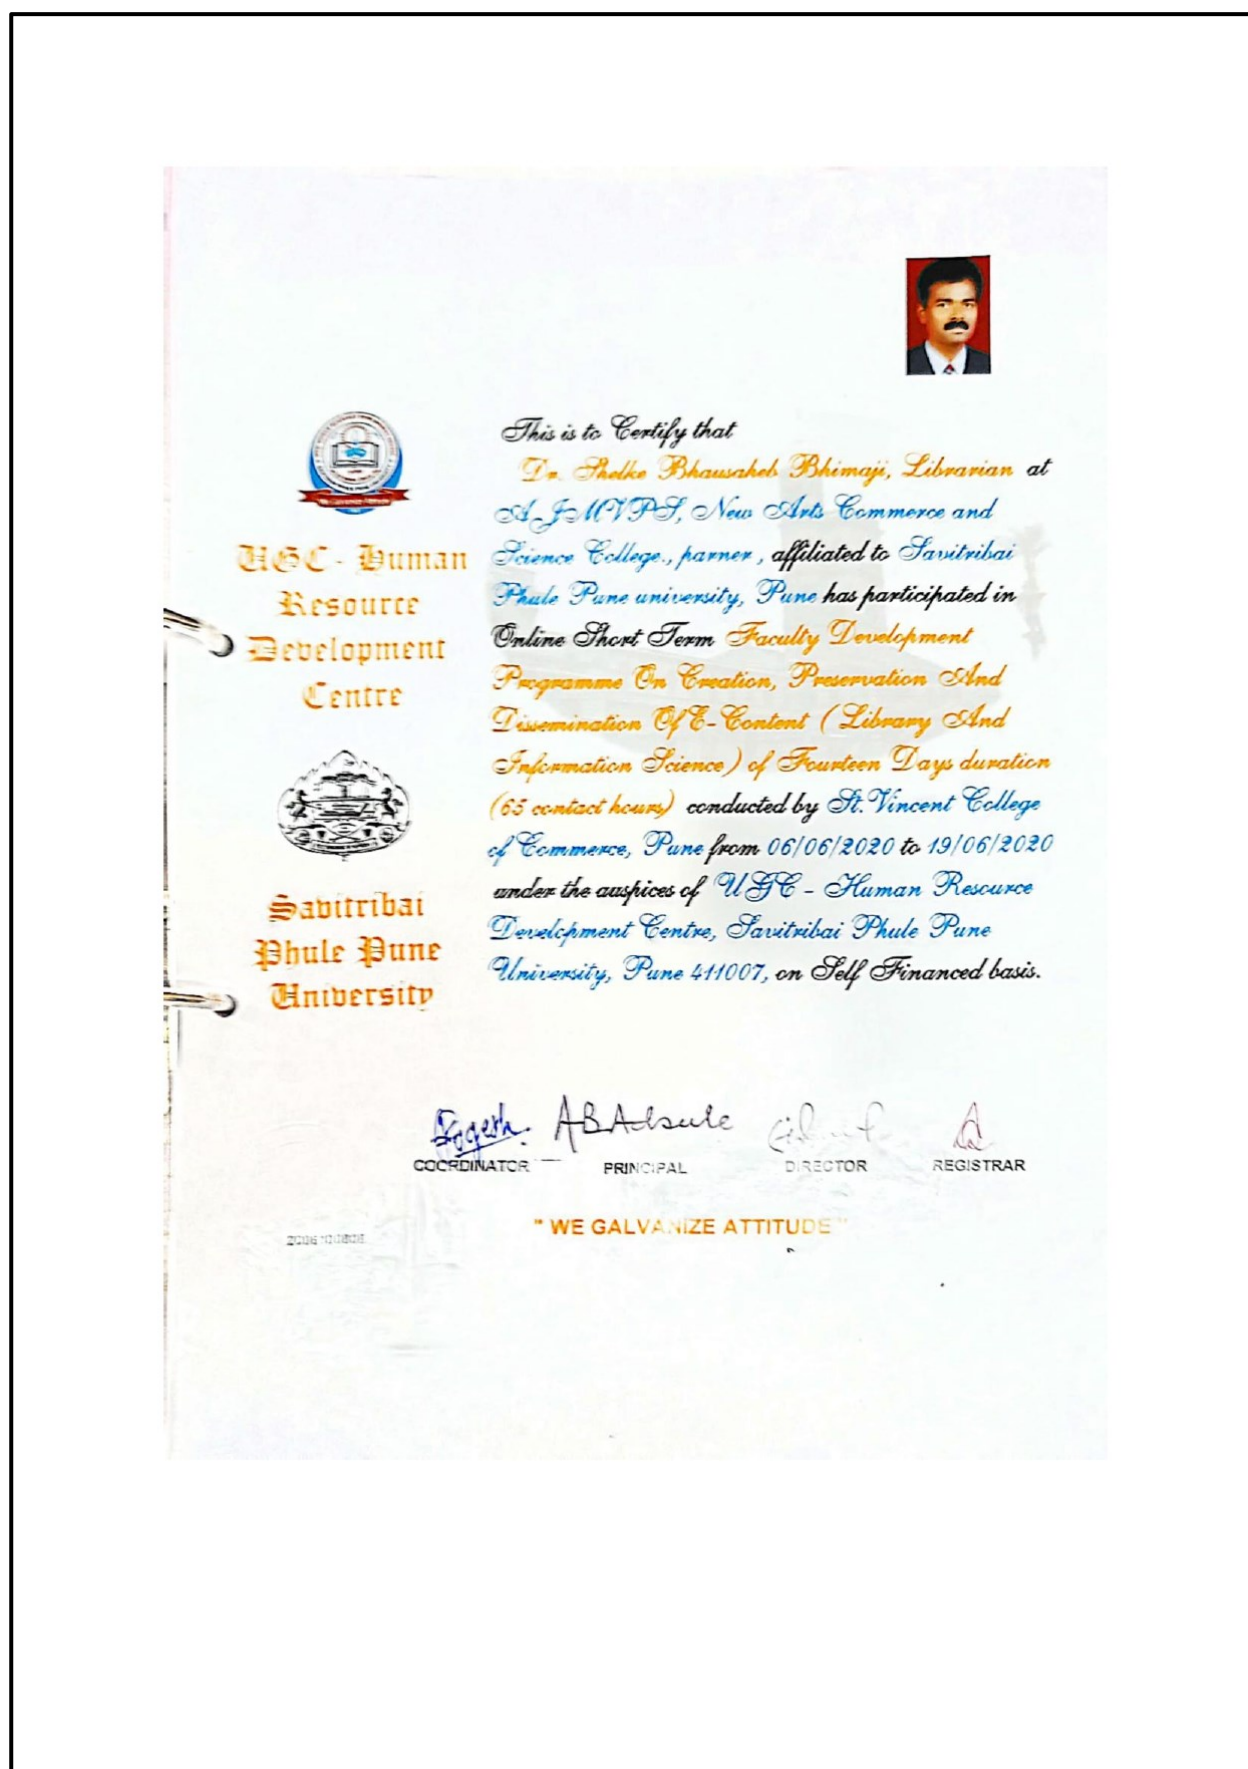 UGC - Human
Resource
Development
Centre
Savitribai
Phule Pune
University
This is to Certify that
Dr. Shelke Bhausaheb Bhimaji, Librarian at
AJMVPS, New Arts Commerce and
Science College., parner , affiliated to Savitribai
Phule Pune university, Pune has participated in
Online Short Term Faculty Development
Programme On Creation, Preservation And
Dissemination Of E-Content (Library And
Information Science) of Fourteen Days duration
(65 contact hours) conducted by St. Vincent College
of Commerce, Pune from 06/06/2020 to 19/06/2020
under the auspices of UGC - Human Resource
Development Centre, Savitribai Phule Pune
University, Pune 411007, on Self Financed basis.
Yogesh. ABAdsule
COORDINATOR PRINCIPAL DIRECTOR REGISTRAR
" WE GALVANIZE ATTITUDE "